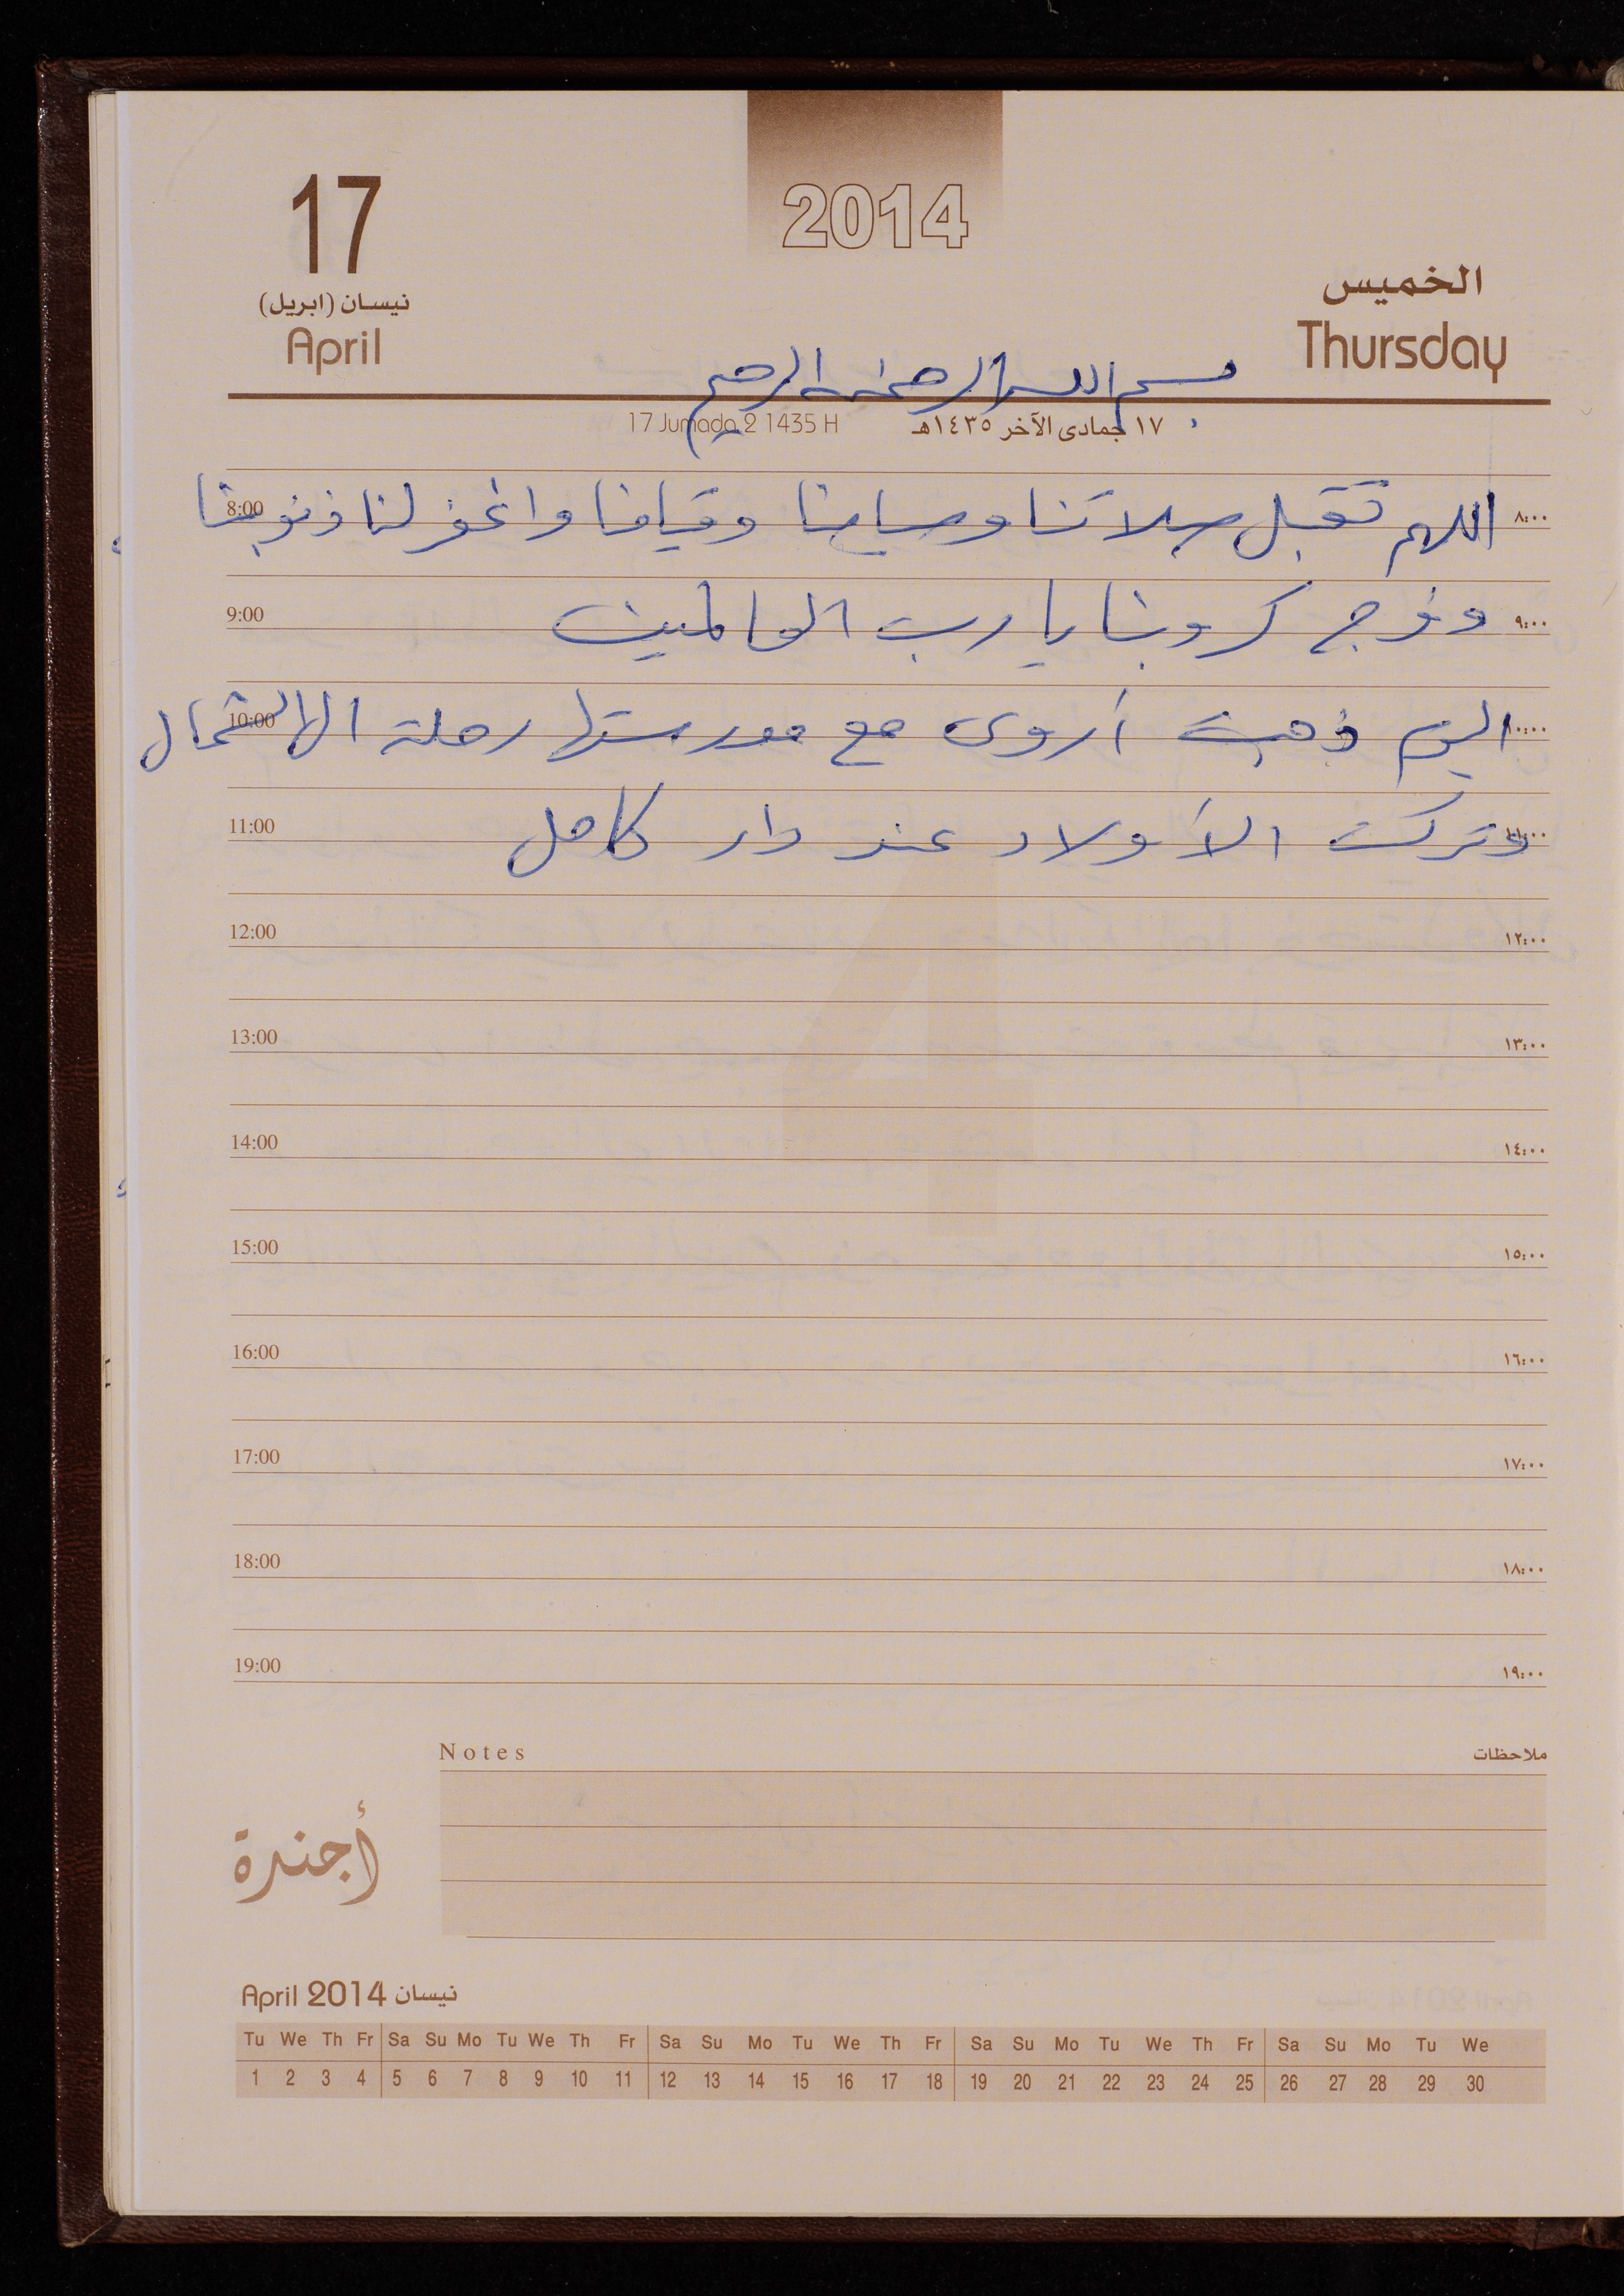 2014
17
نيسان (ابريل)
April
الخميس
Thursday
بسم الله الرحمن الرحيم
17 Jumada 2 1435 H
١٧ جمادى الآخر ١٤٣٥هـ
8:00 ٨:٠٠
اللهم تقبل صلاتنا وصيامنا وقيامنا واغفر لنا ذنوبنا
9:00 ٩:٠٠
وفرج كروبنا يا رب العالمين
10:00 ١٠:٠٠
اليوم ذهبت أروى مع مدرستها رحلة الى الشمال
11:00 ١١:٠٠
وتركت الأولاد عند دار كامل
12:00 ١٢:٠٠
13:00 ١٣:٠٠
14:00 ١٤:٠٠
15:00 ١٥:٠٠
16:00 ١٦:٠٠
17:00 ١٧:٠٠
18:00 ١٨:٠٠
19:00 ١٩:٠٠
Notes ملاحظات
أجندة
April 2014 نيسان
Tu We Th Fr Sa Su Mo Tu We Th Fr Sa Su Mo Tu We Th Fr Sa Su Mo Tu We Th Fr Sa Su Mo Tu We
1 2 3 4 5 6 7 8 9 10 11 12 13 14 15 16 17 18 19 20 21 22 23 24 25 26 27 28 29 30